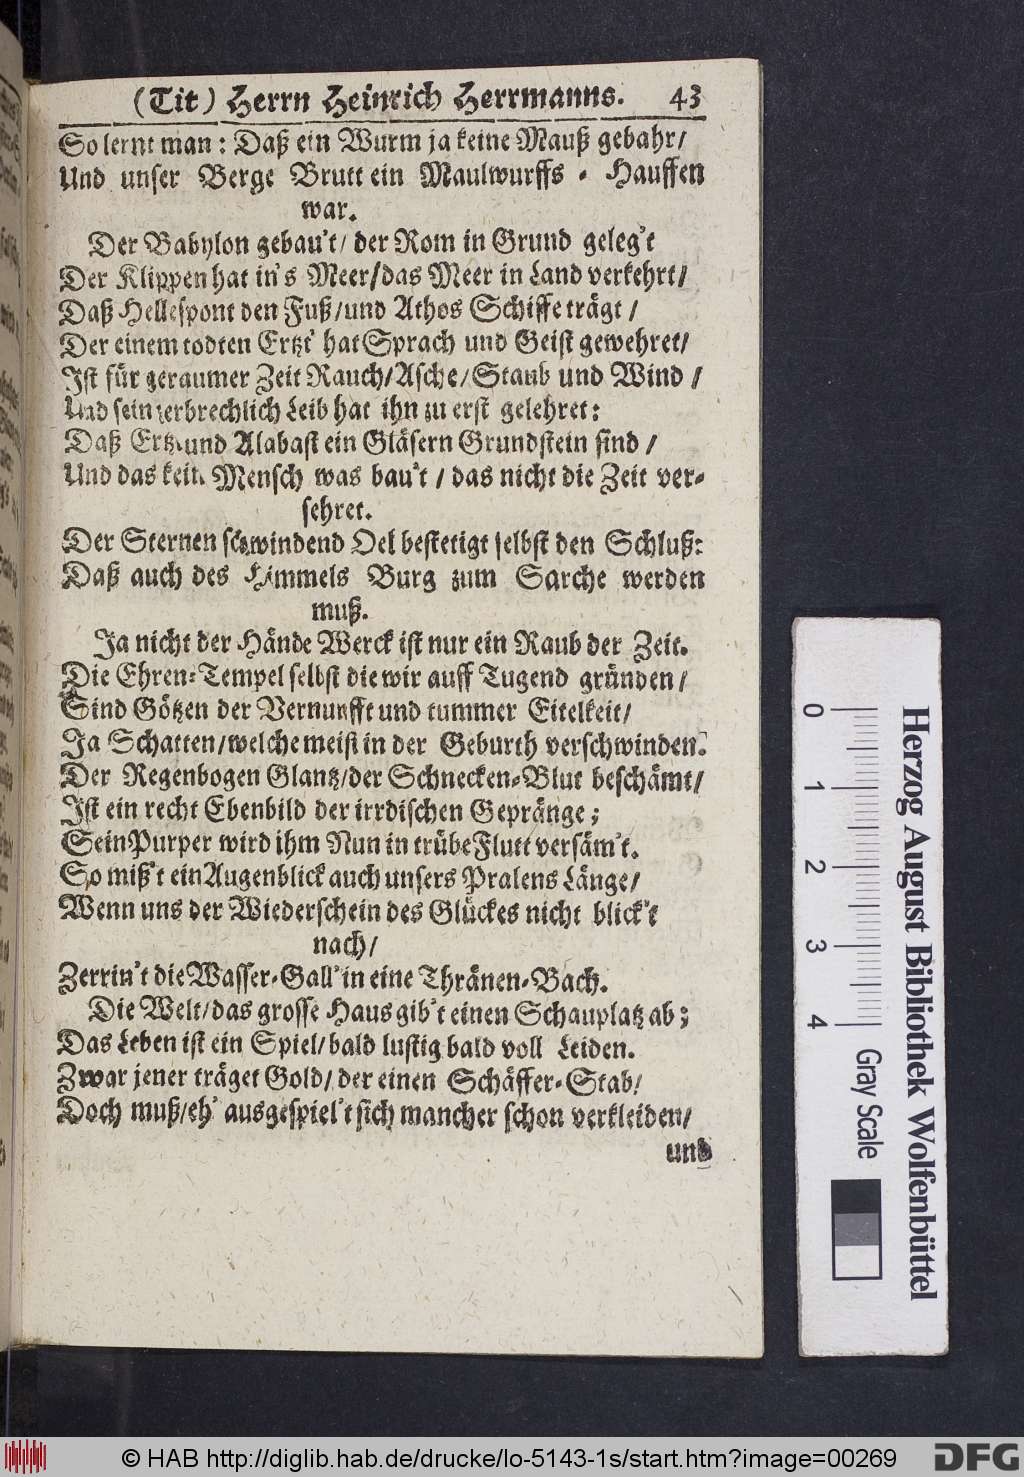 (Tit) Herrn Heinrich Herrmanns. 43
So lernt man: Daß ein Wurm ja keine Mauß gebahr/
Und unser Berge Brutt ein Maulwurffs-Hauffen
war.
Der Babylon gebau't/ der Rom in Grund geleg't
Der Klippen hat in's Meer/das Meer in Land verkehrt/
Daß Hellespont den Fuß/und Athos Schiffe trägt/
Der einem todten Ertzt' hat Sprach und Geist gewehret/
Ist für geraumer Zeit Rauch/Asche/Staub und Wind/
Und sein zerbrechlich Leib hat ihn zu erst gelehret:
Daß Ertz und Alabast ein Gläsern Grundstein sind/
Und das kein Mensch was bau't/das nicht die Zeit ver-
sehret.
Der Sternen schwindend Oel bestetigt selbst den Schluß:
Daß auch des Himmels Burg zum Sarche werden
muß.
Ja nicht der Hände Werck ist nur ein Raub der Zeit.
Die Ehren-Tempel selbst die wir auff Tugend gründen/
Sind Götzen der Vernunfft und tummer Eitelkeit/
Ja Schatten/welche meist in der Geburth verschwinden.
Der Regenbogen Glantz/der Schnecken-Blut beschämt/
Ist ein recht Ebenbild der irrdischen Gepränge;
Sein Purper wird ihm Nun in trübe Flutt versäm't.
So miß't ein Augenblick auch unsers Pralens Länge/
Wenn uns der Wiederschein des Glückes nicht blick't
nach/
Zerrin't die Wasser-Gall' in eine Thränen-Bach.
Die Welt/das grosse Haus gib't einen Schauplatz ab;
Das Leben ist ein Spiel/bald lustig bald voll Leiden.
Zwar jener träget Gold/der einen Schäffer-Stab/
Doch muß/eh' ausgespiel't sich mancher schon verkleiden/
und
0 1 2 3 4
Gray Scale
Herzog August Bibliothek Wolfenbüttel
© HAB http://diglib.hab.de/drucke/lo-5143-1s/start.htm?image=00269
DFG